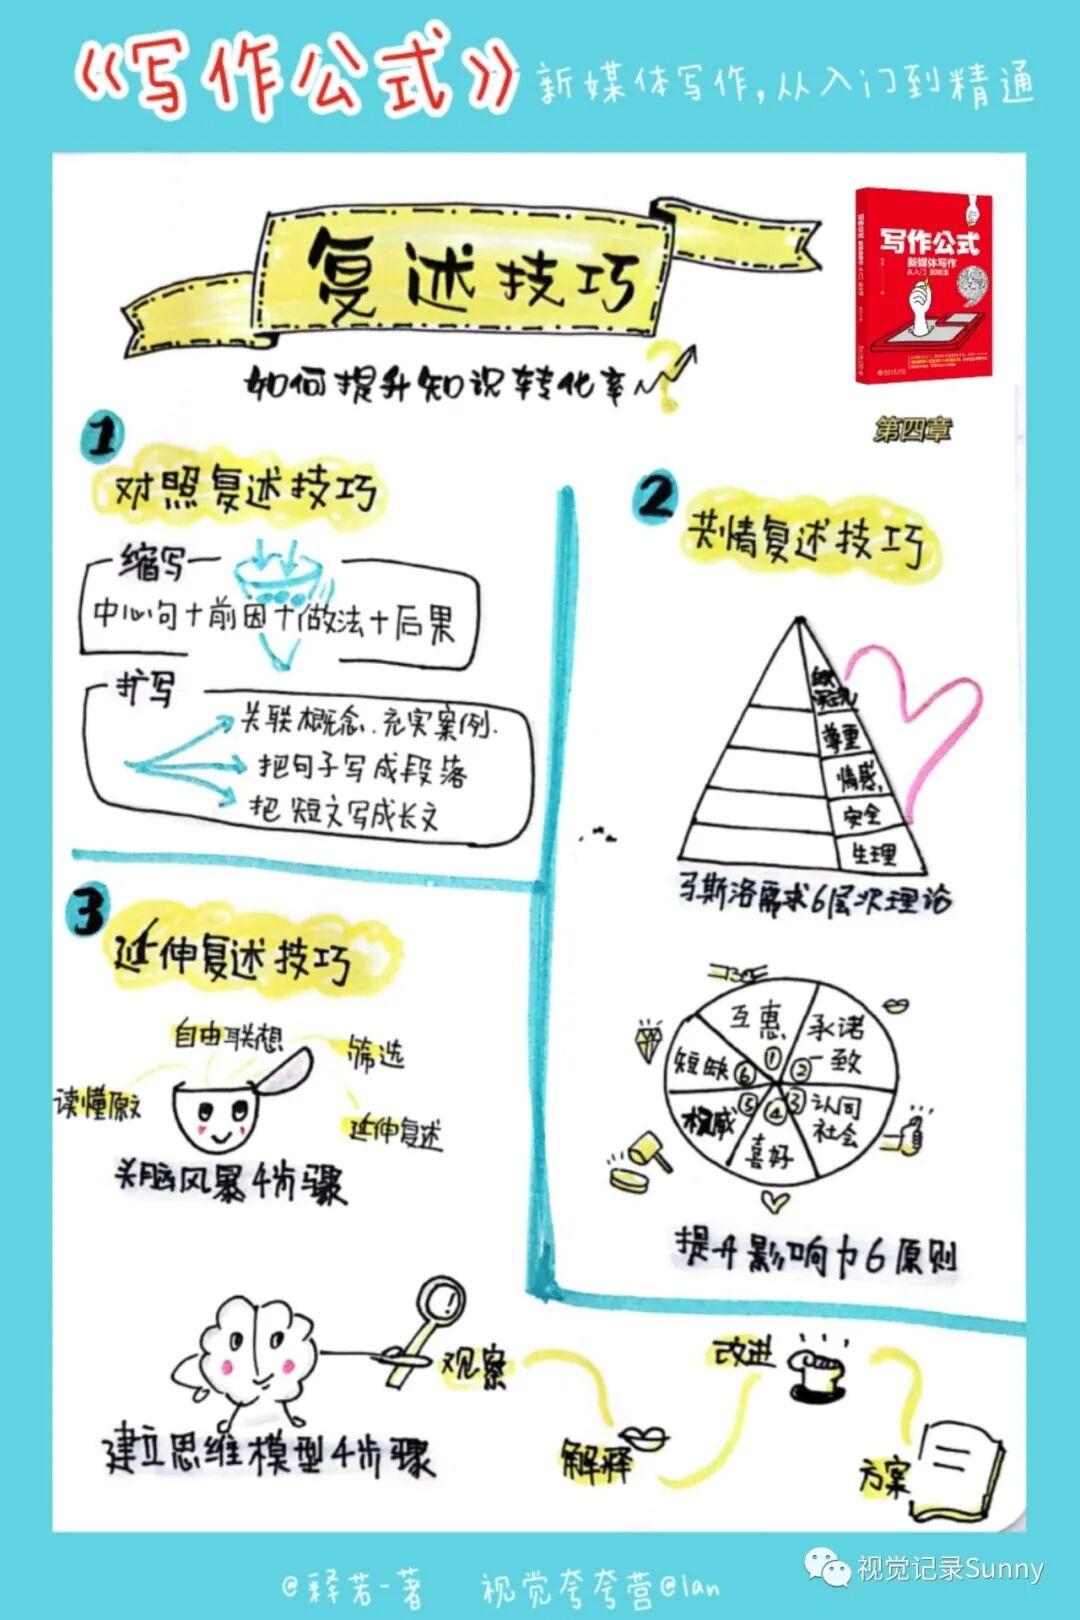 《写作公式》新媒体写作,从入门到精通
复述技巧
如何提升知识转化率
写作公式
新媒体写作
第四章
1
对照复述技巧
缩写
中心句+前因+做法+后果
扩写
关联概念.充实案例.
把句子写成段落
把短文写成长文
2
共情复述技巧
自我
实现
尊重
情感,
安全
生理
马斯洛需求6层次理论
互惠
①
承诺
一致
②
认同
社会
③
喜好
④
权威
⑤
短缺
⑥
提升影响力6原则
3
延伸复述技巧
读懂原文
自由联想
筛选
延伸复述
头脑风暴4步骤
观察
解释
改进
方案
建立思维模型4步骤
@释若-著 视觉夸夸营@lan
视觉记录Sunny